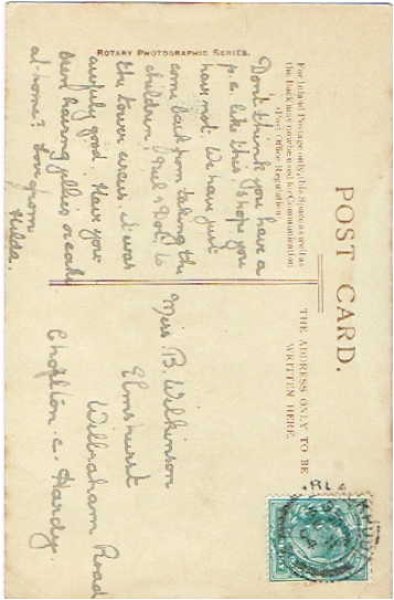 ROTARY PHOTOGRAPHIC SERIES.
POST CARD.
For Inland Postage only, this Space as well as
the Back may now be used for Communication
(Post Office Regulation).
THE ADDRESS ONLY TO BE
WRITTEN HERE.
Dont think you have a
p.c. like this, I hope you
have not. We have just
come back from taking the
children, & Dot, to
the tower it was
awfully good. Have you
been having jellies or
at home? Love from
Hilda.
Miss B. Wilkinson
Elmshurst
Wilbraham Road
Chorlton. c. Hardy.
04